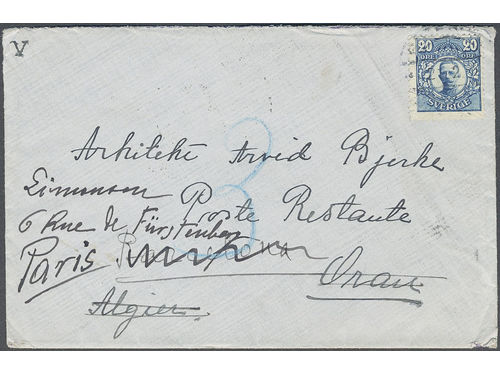 V
20 20
ÖRE ÖRE
SVERIGE
Arkitekt Arvid Bjerke
Simonson Poste Restante
6 Rue de Fürstenberg
Paris
Oran
Algier
3